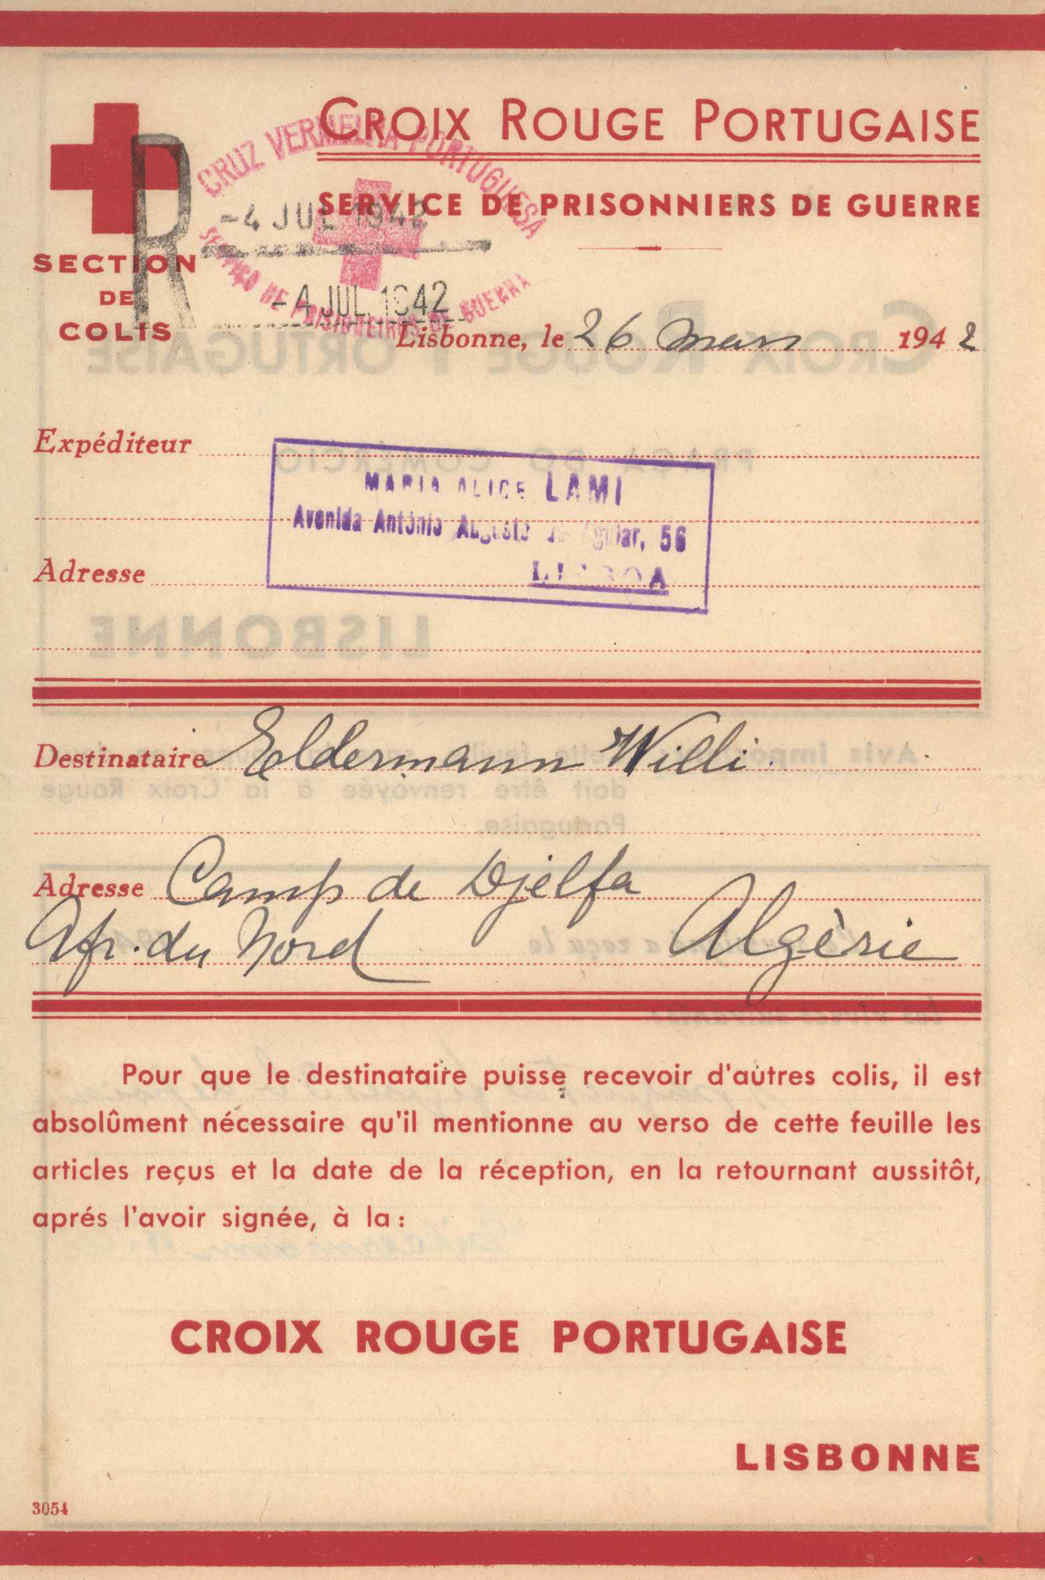 CROIX ROUGE PORTUGAISE
SERVICE DE PRISONNIERS DE GUERRE
R
CRUZ VERMELHA PORTUGUESA
-4 JUL 1942
SERVIÇO DE PRISIONEIROS DE GUERRA
-4 JUL. 1942
SECTION
DE
COLIS
Lisbonne, le 26 mars 1942
Expéditeur
MARIA ALICE LAMI
Avenida António Augusto de Aguiar, 56
LISBOA
Adresse
Destinataire Eldermann Willi.
Adresse Camp de Djelfa
Afr. du Nord Algèrie
Pour que le destinataire puisse recevoir d'autres colis, il est
absolûment nécessaire qu'il mentionne au verso de cette feuille les
articles reçus et la date de la réception, en la retournant aussitôt,
aprés l'avoir signée, à la:
CROIX ROUGE PORTUGAISE
LISBONNE
3054